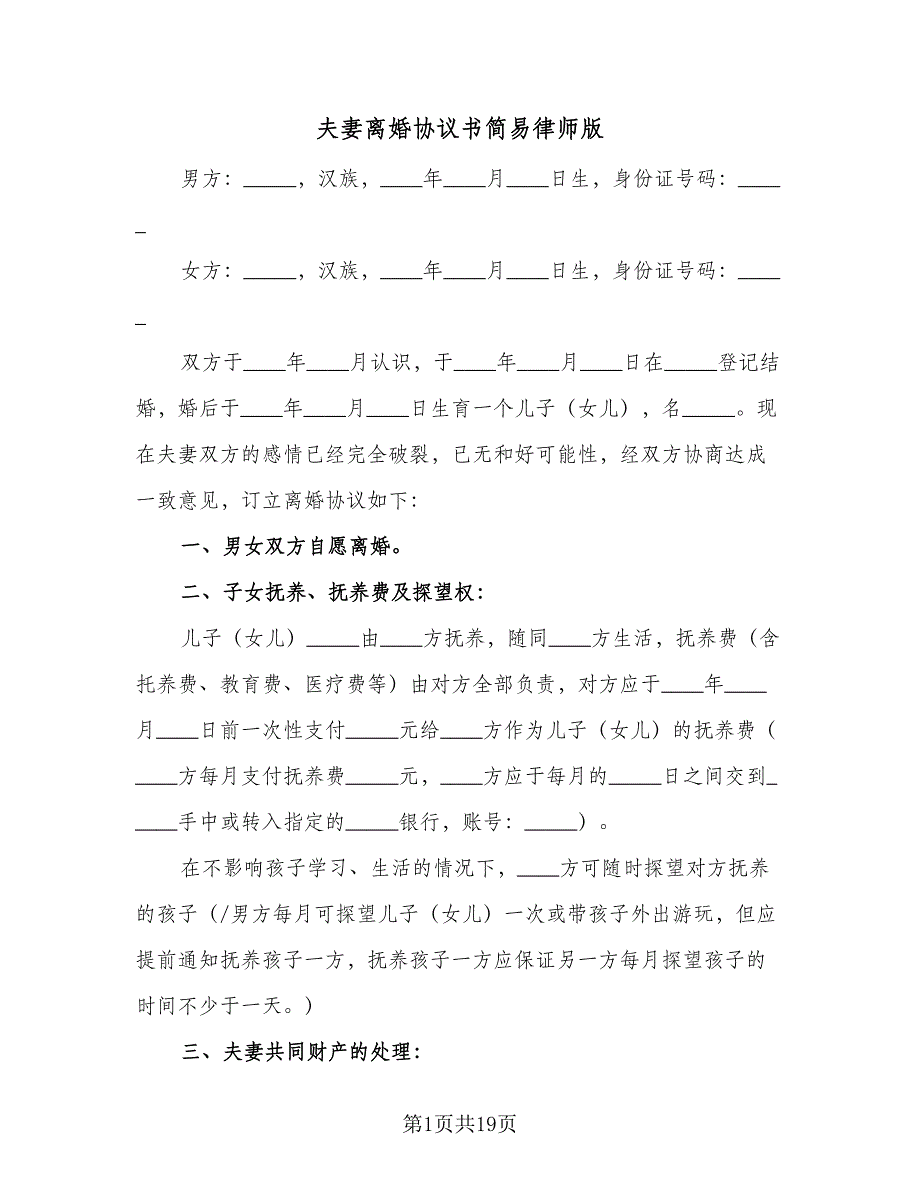 夫妻离婚协议书简易律师版
男方：_____，汉族，____年____月____日生，身份证号码：____
_
女方：_____，汉族，____年____月____日生，身份证号码：____
_
双方于____年____月认识，于____年____月____日在_____登记结
婚，婚后于____年____月____日生育一个儿子（女儿），名_____。现
在夫妻双方的感情已经完全破裂，已无和好可能性，经双方协商达成
一致意见，订立离婚协议如下：
一、男女双方自愿离婚。
二、子女抚养、抚养费及探望权：
儿子（女儿）_____由____方抚养，随同____方生活，抚养费（含
托养费、教育费、医疗费等）由对方全部负责，对方应于____年____
月____日前一次性支付_____元给____方作为儿子（女儿）的抚养费（
____方每月支付抚养费_____元，____方应于每月的_____日之间交到_
____手中或转入指定的_____银行，账号：_____）。
在不影响孩子学习、生活的情况下，____方可随时探望对方抚养
的孩子（/男方每月可探望儿子（女儿）一次或带孩子外出游玩，但应
提前通知抚养孩子一方，抚养孩子一方应保证另一方每月探望孩子的
时间不少于一天。）
三、夫妻共同财产的处理：
第1页共19页